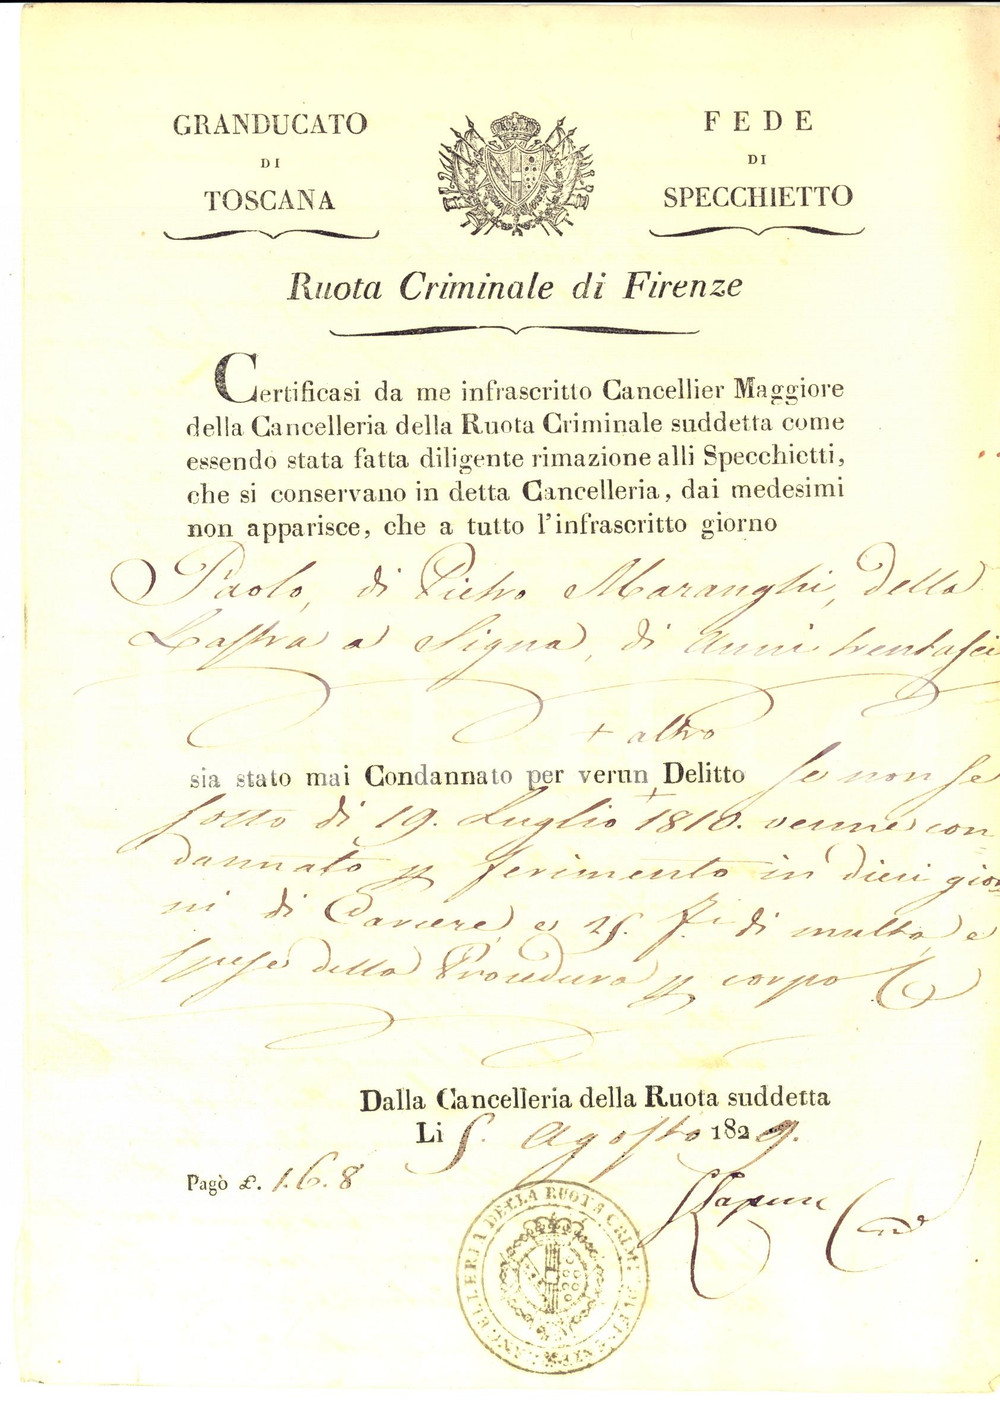 GRANDUCATO
DI
TOSCANA
FEDE
DI
SPECCHIETTO
Ruota Criminale di Firenze
Certificasi da me infrascritto Cancellier Maggiore
della Cancelleria della Ruota Criminale suddetta come
essendo stata fatta diligente rimazione alli Specchietti,
che si conservano in detta Cancelleria, dai medesimi
non apparisce, che a tutto l'infrascritto giorno
Paolo, di Pietro Maranghi, della
Lastra a Signa, di Anni trentasei
+ altro
sia stato mai Condannato per verun Delitto se non se
+
sotto dì 19. Luglio 1810. venne con
dannato p ferimento in dieci gior
ni di Carcere, e 25. di multa, e
spese della Procedura p corpo
Dalla Cancelleria della Ruota suddetta
Li 5. Agosto 1829.
Pagò £. 1.6.8
CANCELLERIA DELLA RUOTA CRIM: